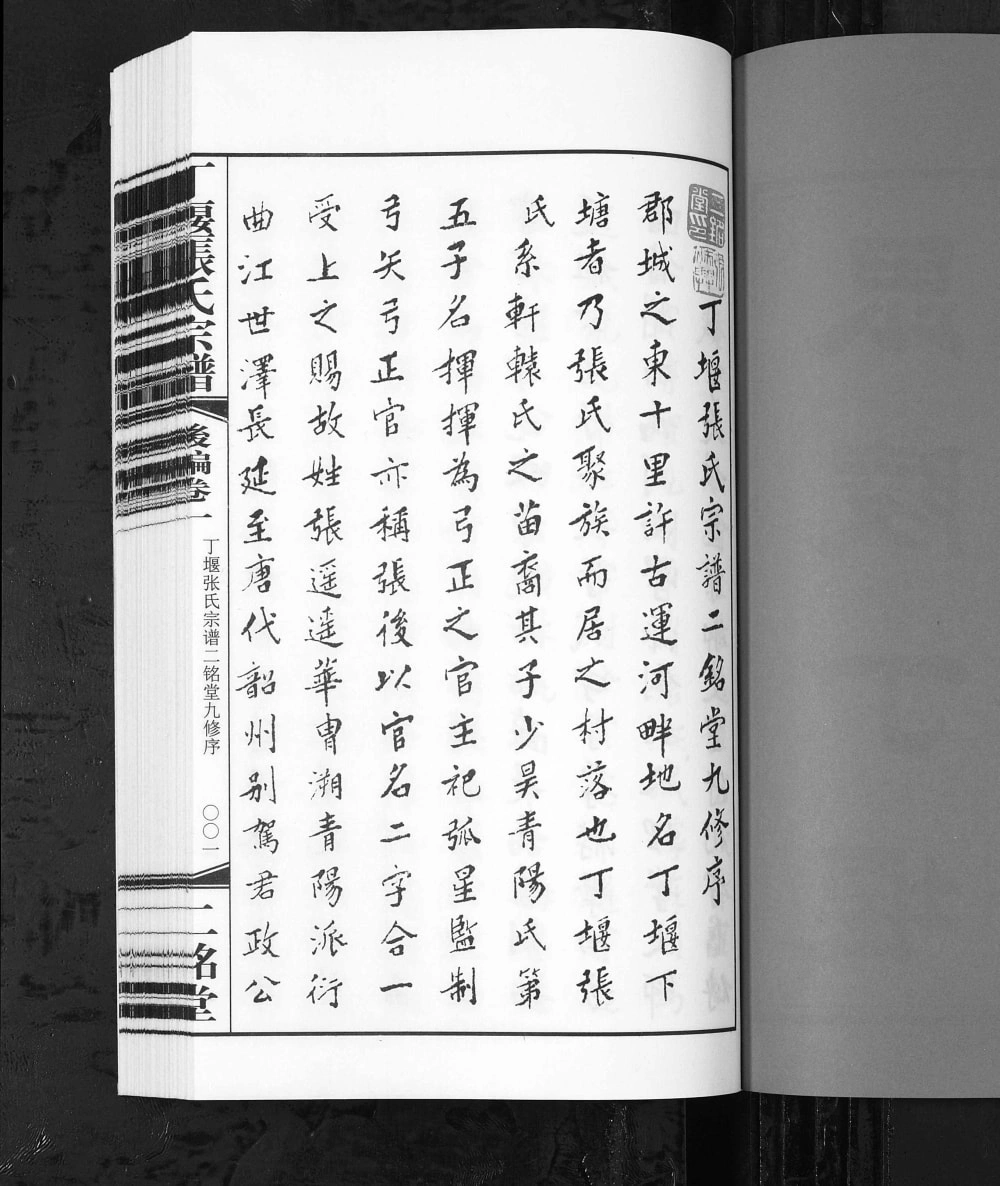 丁堰張氏宗譜二銘堂九修序
郡城之東十里許古運河畔地名丁堰下
塘者乃張氏聚族而居之村落也丁堰張
氏系軒轅氏之苗裔其子少昊青陽氏第
五子名揮揮為弓正之官主祀弧星監制
弓矢弓正官亦稱張後以官名二字合一
受上之賜故姓張遥遥華胄溯青陽派衍
曲江世澤長延至唐代韶州别駕君政公
丁堰張氏宗譜
後編卷一
丁堰张氏宗谱二铭堂九修序
〇〇一
二銘堂